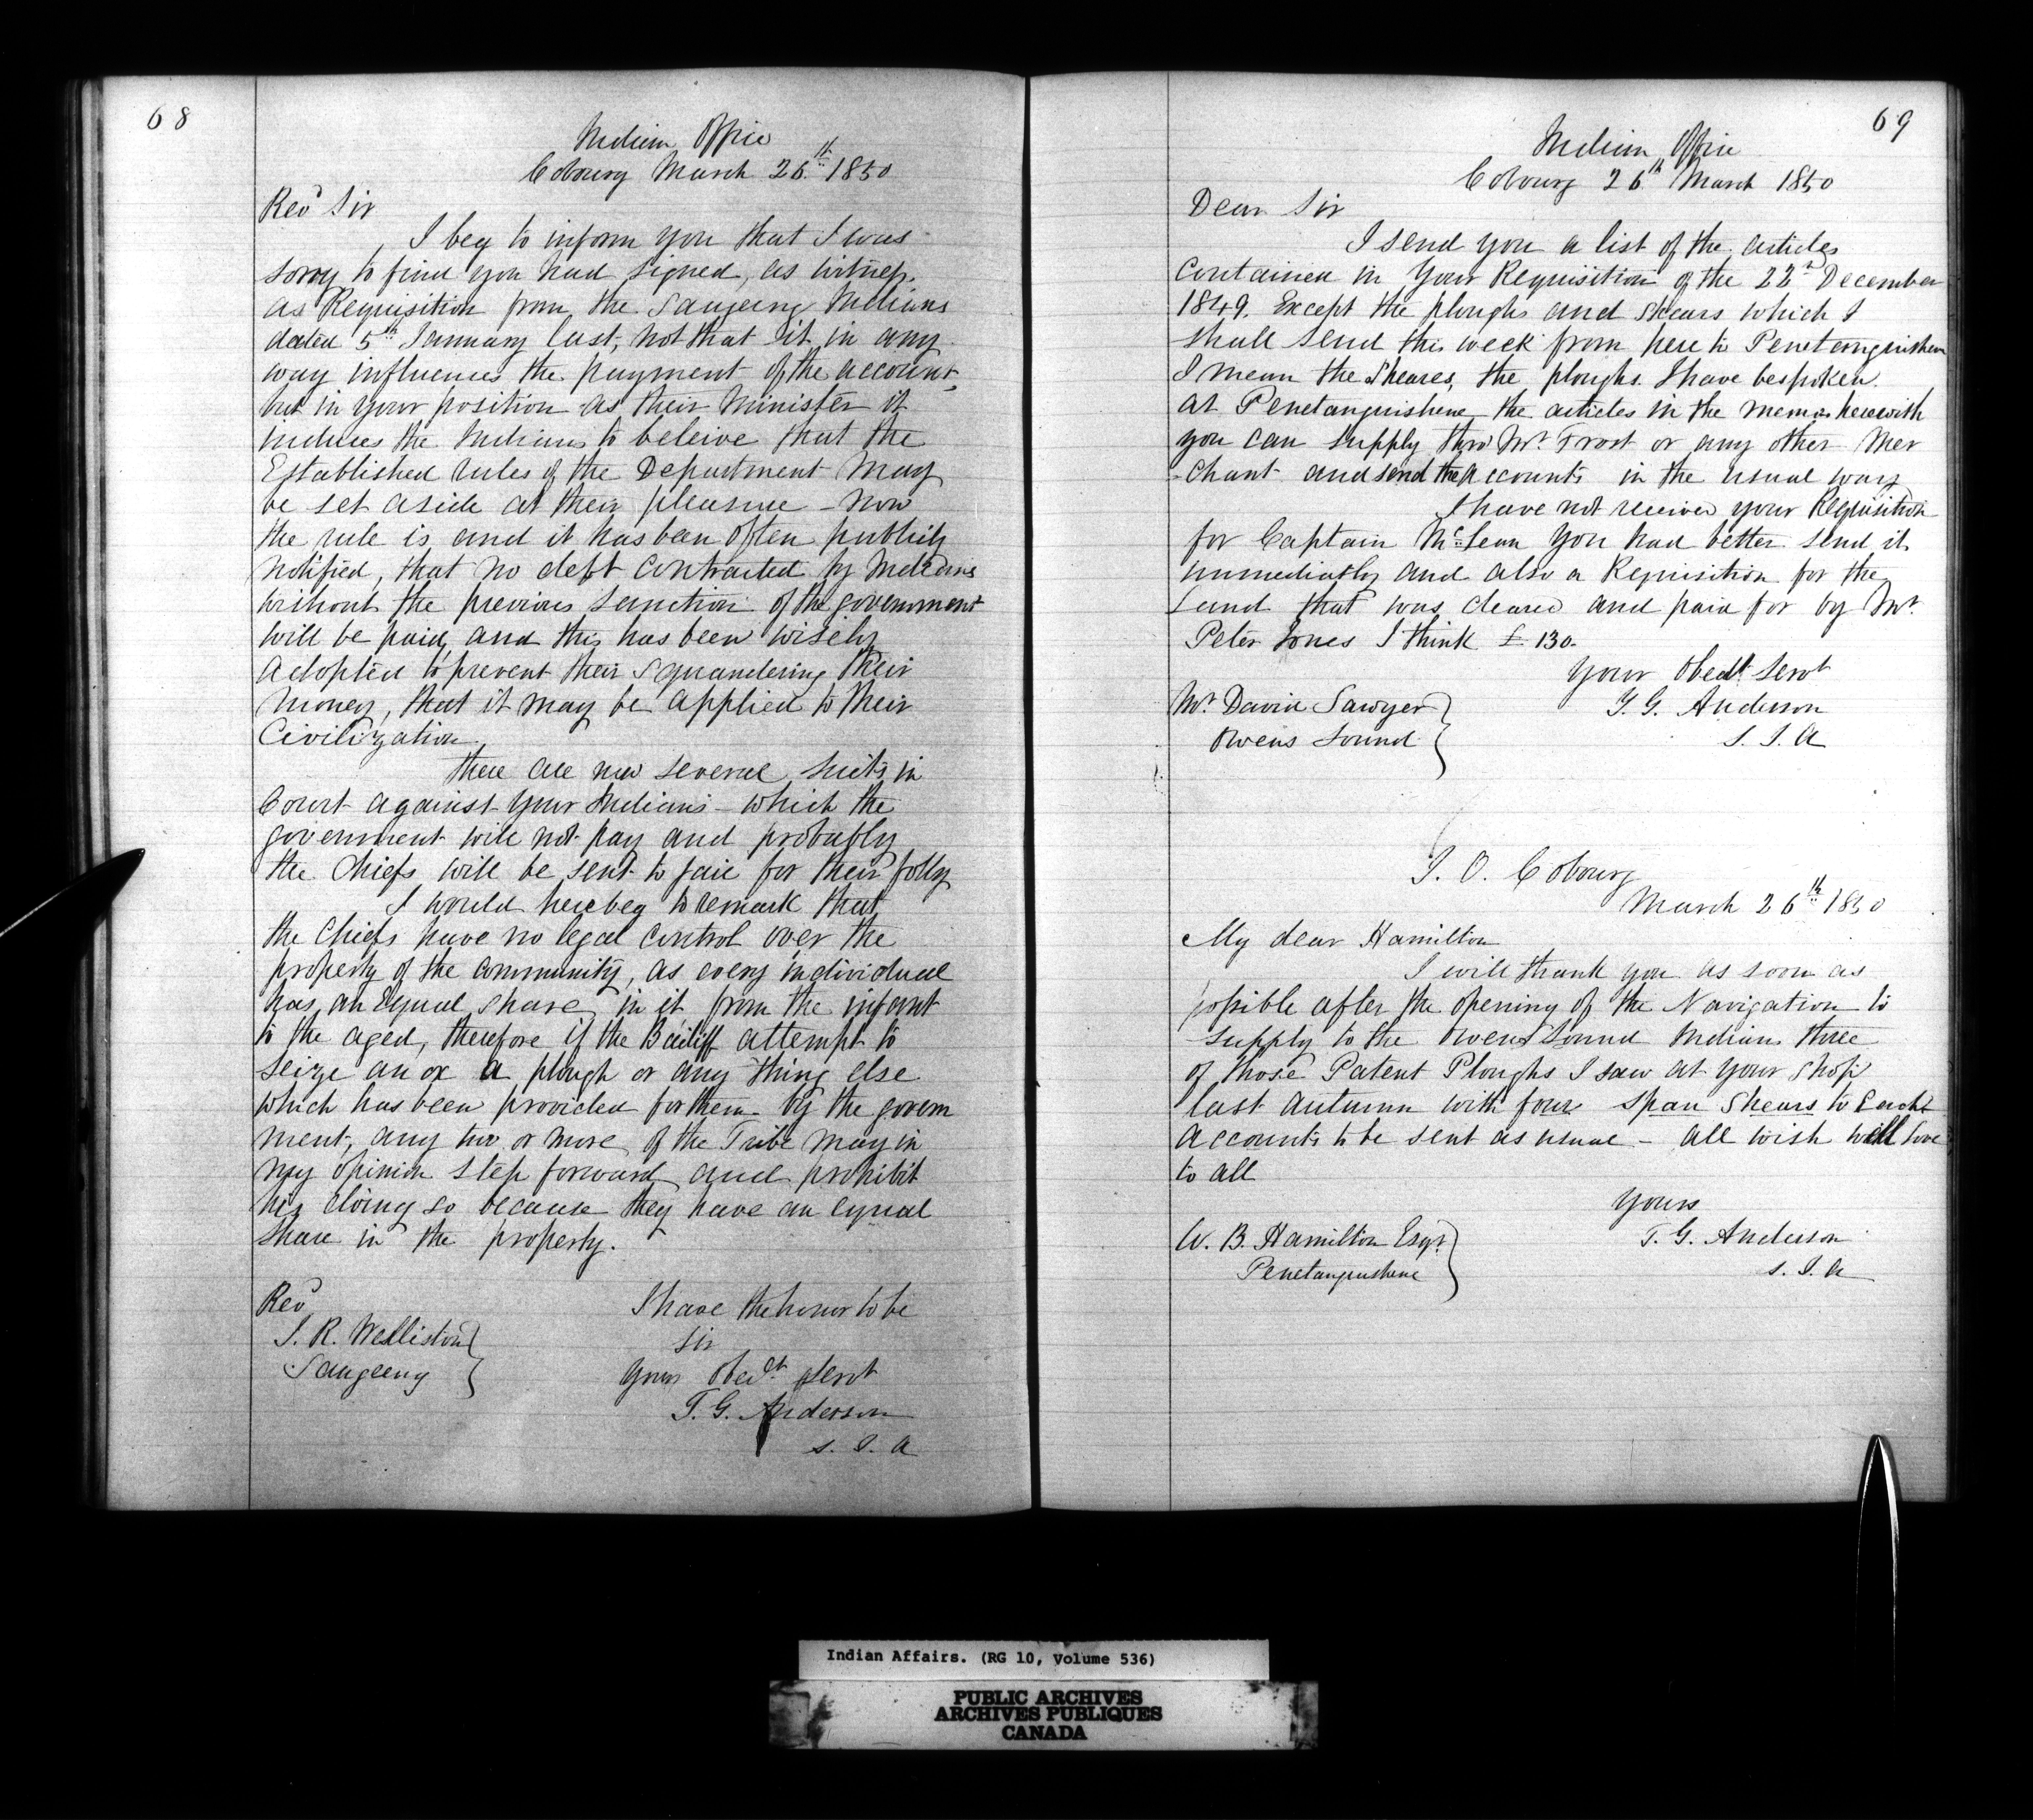 68
Indian Office
Cobourg March 26th 1850
Revd Sir
I beg to inform you that I was
sorry to find you had signed, as witness
as Requisition from the Saugeeng Indians
dated 5th January last, not that it in any
way influences the payment of the account,
but in your position as their Minister it
induces the Indians to beleive that the
Established rules of the Department may
be set aside at their pleasure - now
the rule is and it has been often publicly
notified, that no debt contracted by Indians
without the previous sanction of the government
will be paid, and this has been wisely
adopted to prevent their squandering their
money, that it may be applied to their
Civilization.
There are now several suits in
Court against your Indians - which the
government will not pay and probably
the Chiefs will be sent to jail for their folly
I would here beg to remark that
the Chiefs have no legal control over the
property of the community, as every individual
has an Equal share in it from the infant
to the aged, therefore if the Bailiff attempt to
seize an ox a plough or any thing else
which has been provided for them by the govern
ment, any two or more of the Tribe may in
my opinion step forward and prohibit
his doing so because they have an equal
share in the property.
I have the honor to be
Sir
Your Obedt Servt
T. G. Anderson
S. I. A
Revd
J. R. Welliston
Saugeeng
69
Indian Office
Cobourg 26th March 1850
Dear Sir
I send you a list of the articles
contained in Your Requisition of the 22d December
1849. Except the ploughs and Shears which I
shall send this week from here to Penetanguishene
I mean the Sheares, the ploughs I have bespoken
at Penetanguishene the articles in the memo herewith
you can supply thro' Mr Frost or any other Mer
-chant and send the accounts in the usual way
I have not received your Requisition
for Captain McLean You had better send it
immediately and also a Requisition for the
Land that was cleared and paid for by Mr
Peter Jones I think £130.
Your Obedt Servt
T. G. Anderson
S. I. A
Mr David Sawyer
Owens Sound
I. O. Cobourg
March 26th 1850
My dear Hamilton
I will thank you as soon as
possible after the opening of the Navigation to
supply to the Owens Sound Indians three
of those Patent Ploughs I saw at your shop
last autumn with four span Shears to Each
accounts to be sent as usual - all wish well love
to all
Yours
T. G. Anderson
S. I. A
W. B. Hamilton Esqr
Penetanguishene
Indian Affairs. (RG 10, Volume 536)
PUBLIC ARCHIVES
ARCHIVES PUBLIQUES
CANADA